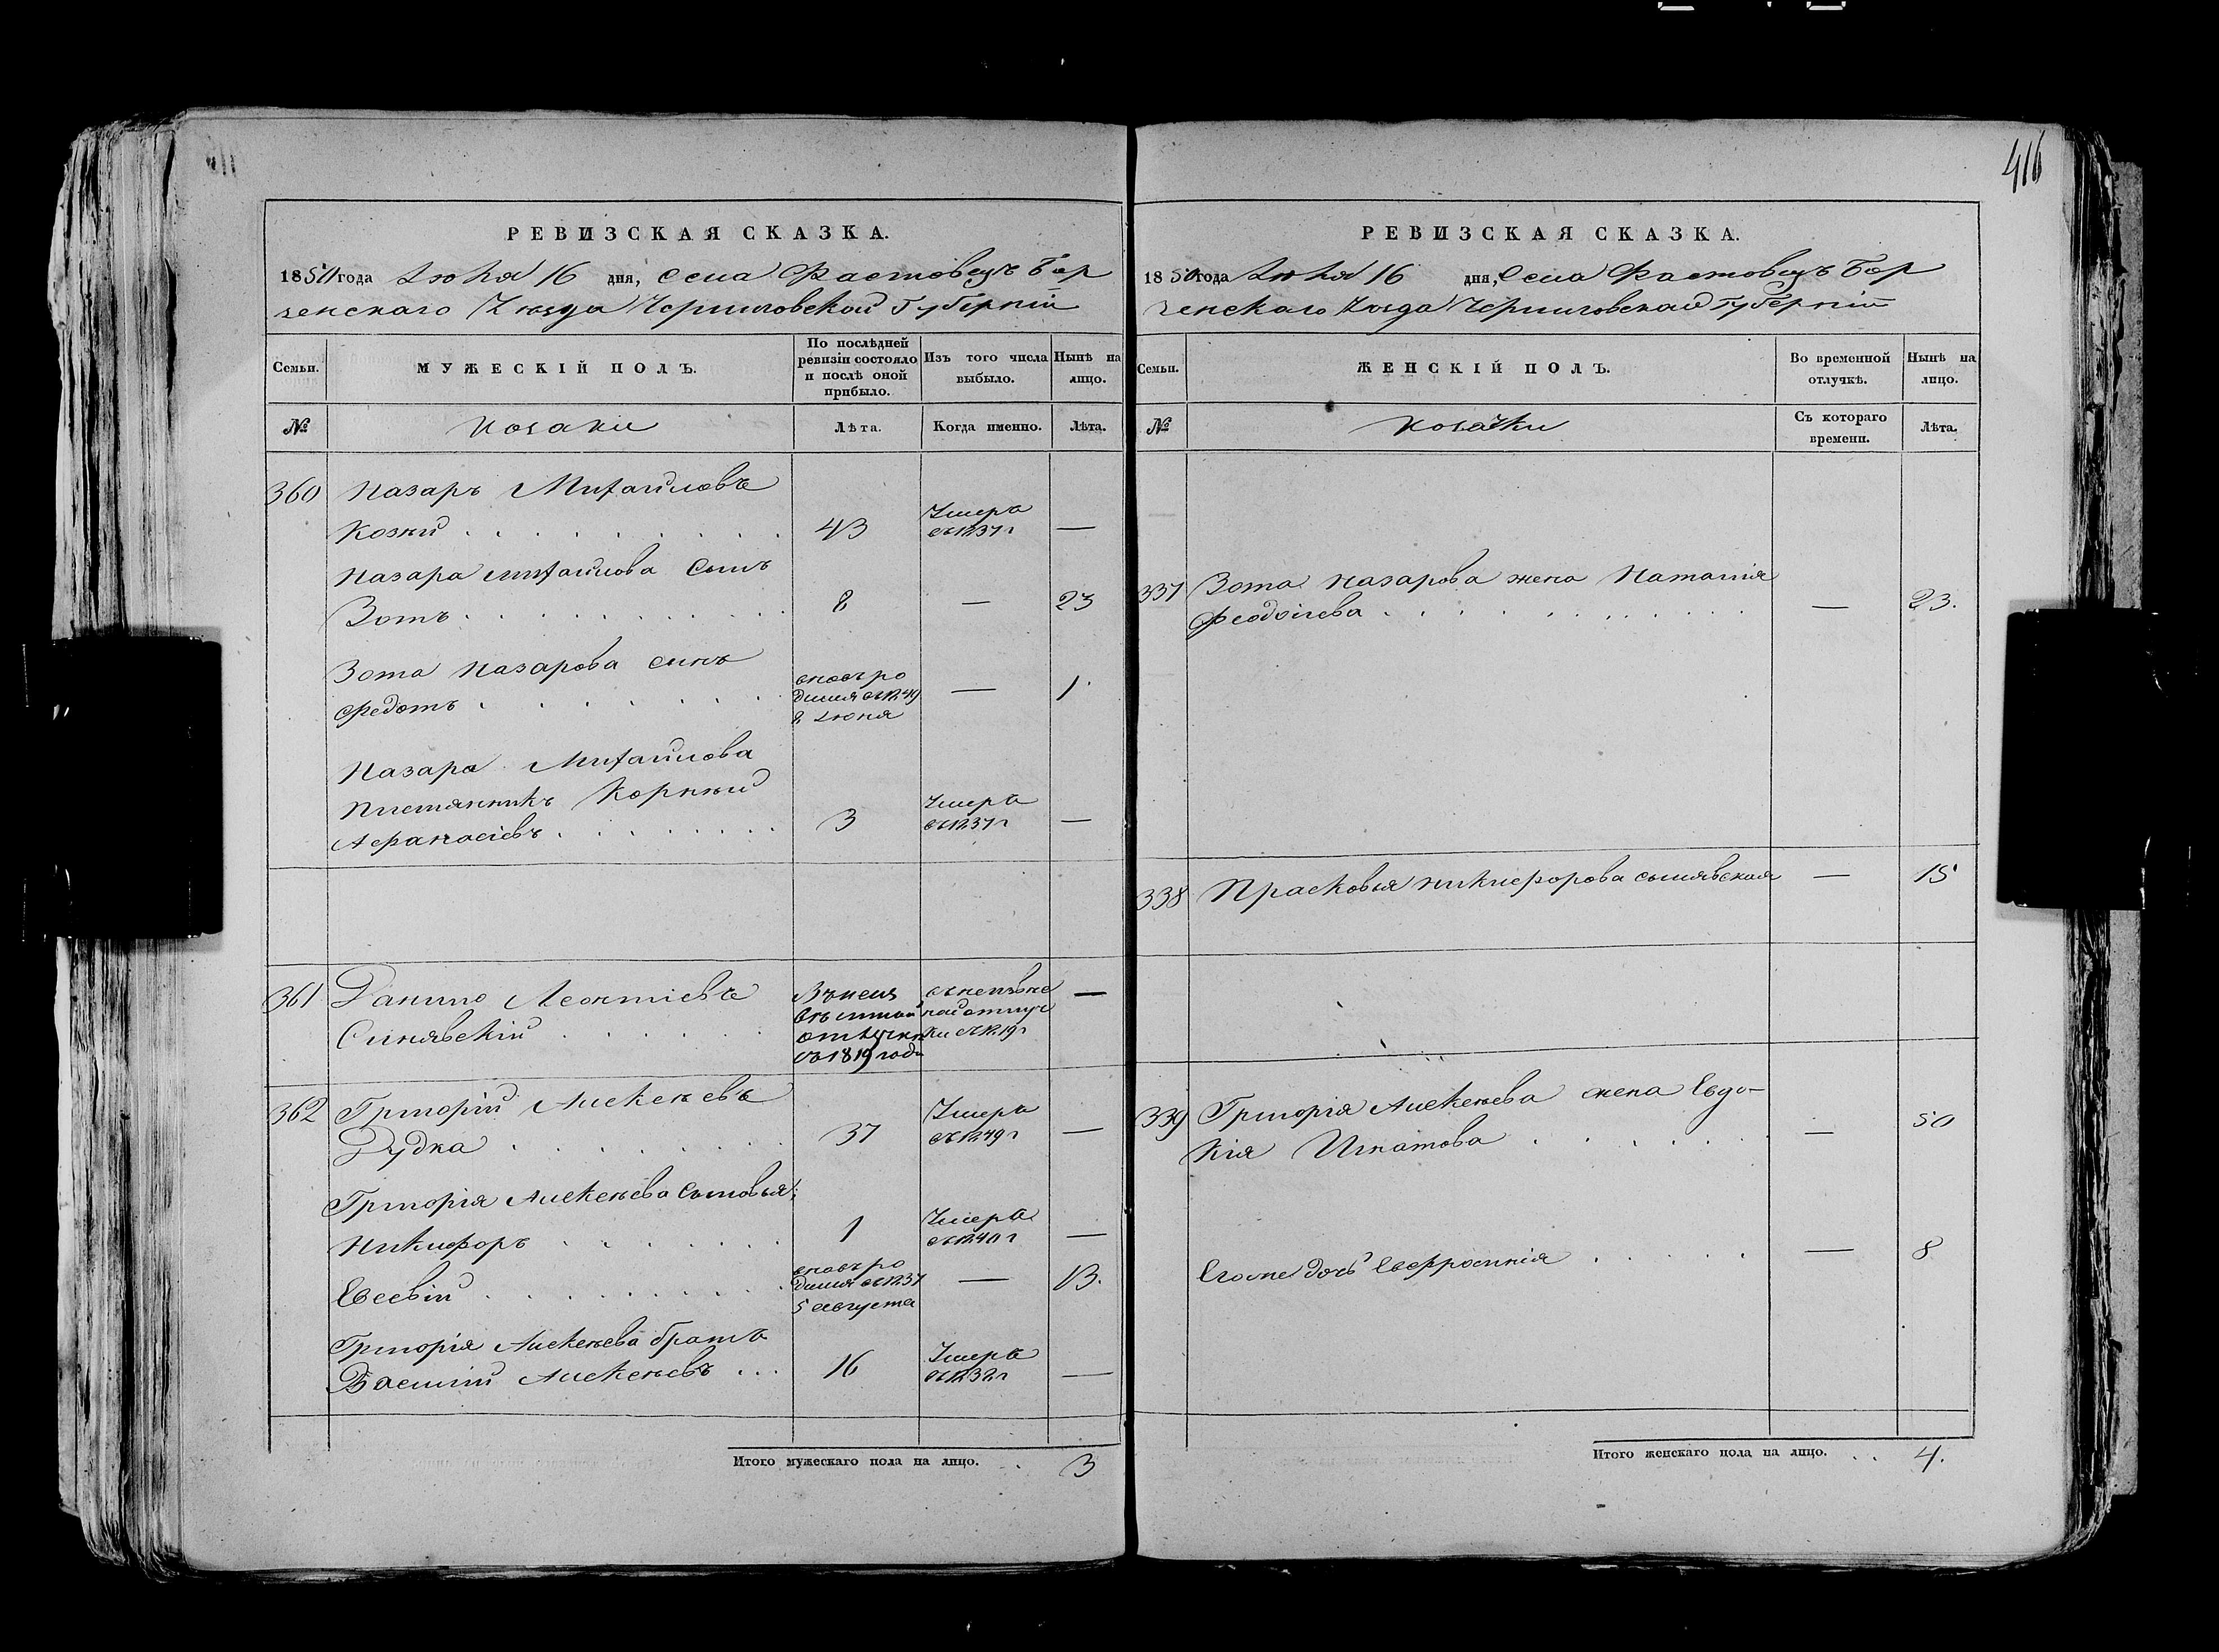 416
РЕВИЗСКАЯ СКАЗКА.
1850 года Июня 16 дня, Села Фастовецъ Бор
зенскаго Уѣзда Черниговской Губерніи
Семьи.
МУЖЕСКІЙ ПОЛЪ.
По послѣдней
ревизіи состояло
и послѣ оной
прибыло.
Изъ того числа
выбыло.
Нынѣ на
лицо.
№
Козаки
Лѣта.
Когда именно.
Лѣта.
360 Назаръ Михайловъ
Козюй 43 Умеръ въ 1837 г —
Назара Михайлова Сынъ
Зотъ 8 — 23
Зота Назарова сынъ
Федотъ вновь ро
дился въ 1849
2 Июня — 1
Назара Михайлова
Племянникъ Корней
Афанасіевъ 3 Умеръ въ 1837 г —
361 Данило Леонтіевъ
Синявскій
отлучки
съ 1819 года
съ 1819 г —
362 Григорій Алексѣевъ
Дудка 37 Умеръ въ 1849 г —
Григорія Алексѣева Сыновья:
Никифоръ 1 Умеръ въ 1840 г —
Евсевій вновь ро
дился въ 1837
5 Августа — 13.
Григорія Алексѣева братъ
Василій Алексѣевъ 16 Умеръ въ 1832 г —
Итого мужескаго пола на лицо. 3
РЕВИЗСКАЯ СКАЗКА.
1850 года Июня 16 дня, Села Фастовецъ Бор
зенскаго Уѣзда Черниговской Губерніи
Семьи.
ЖЕНСКІЙ ПОЛЪ.
Во временной
отлучкѣ.
Нынѣ на
лицо.
№
Козачки
Съ котораго
времени.
Лѣта.
337 Зота Назарова жена Наталія
Феодосіева — 23.
338 Прасковья Никифорова Синявская — 15
339 Григорія Алексѣева жена Евдо-
кія Игнатова — 50
Его же дочь Евфросинія — 8
Итого женскаго пола на лицо. 4.